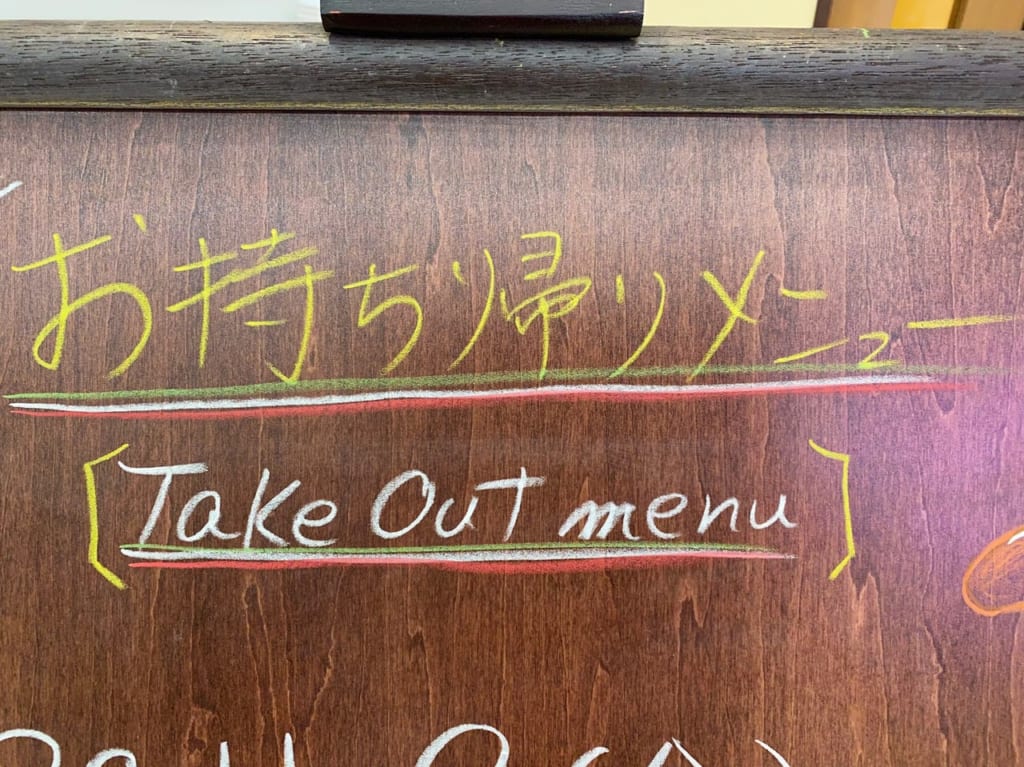 お持ち帰りメニュー
[Take Out menu]